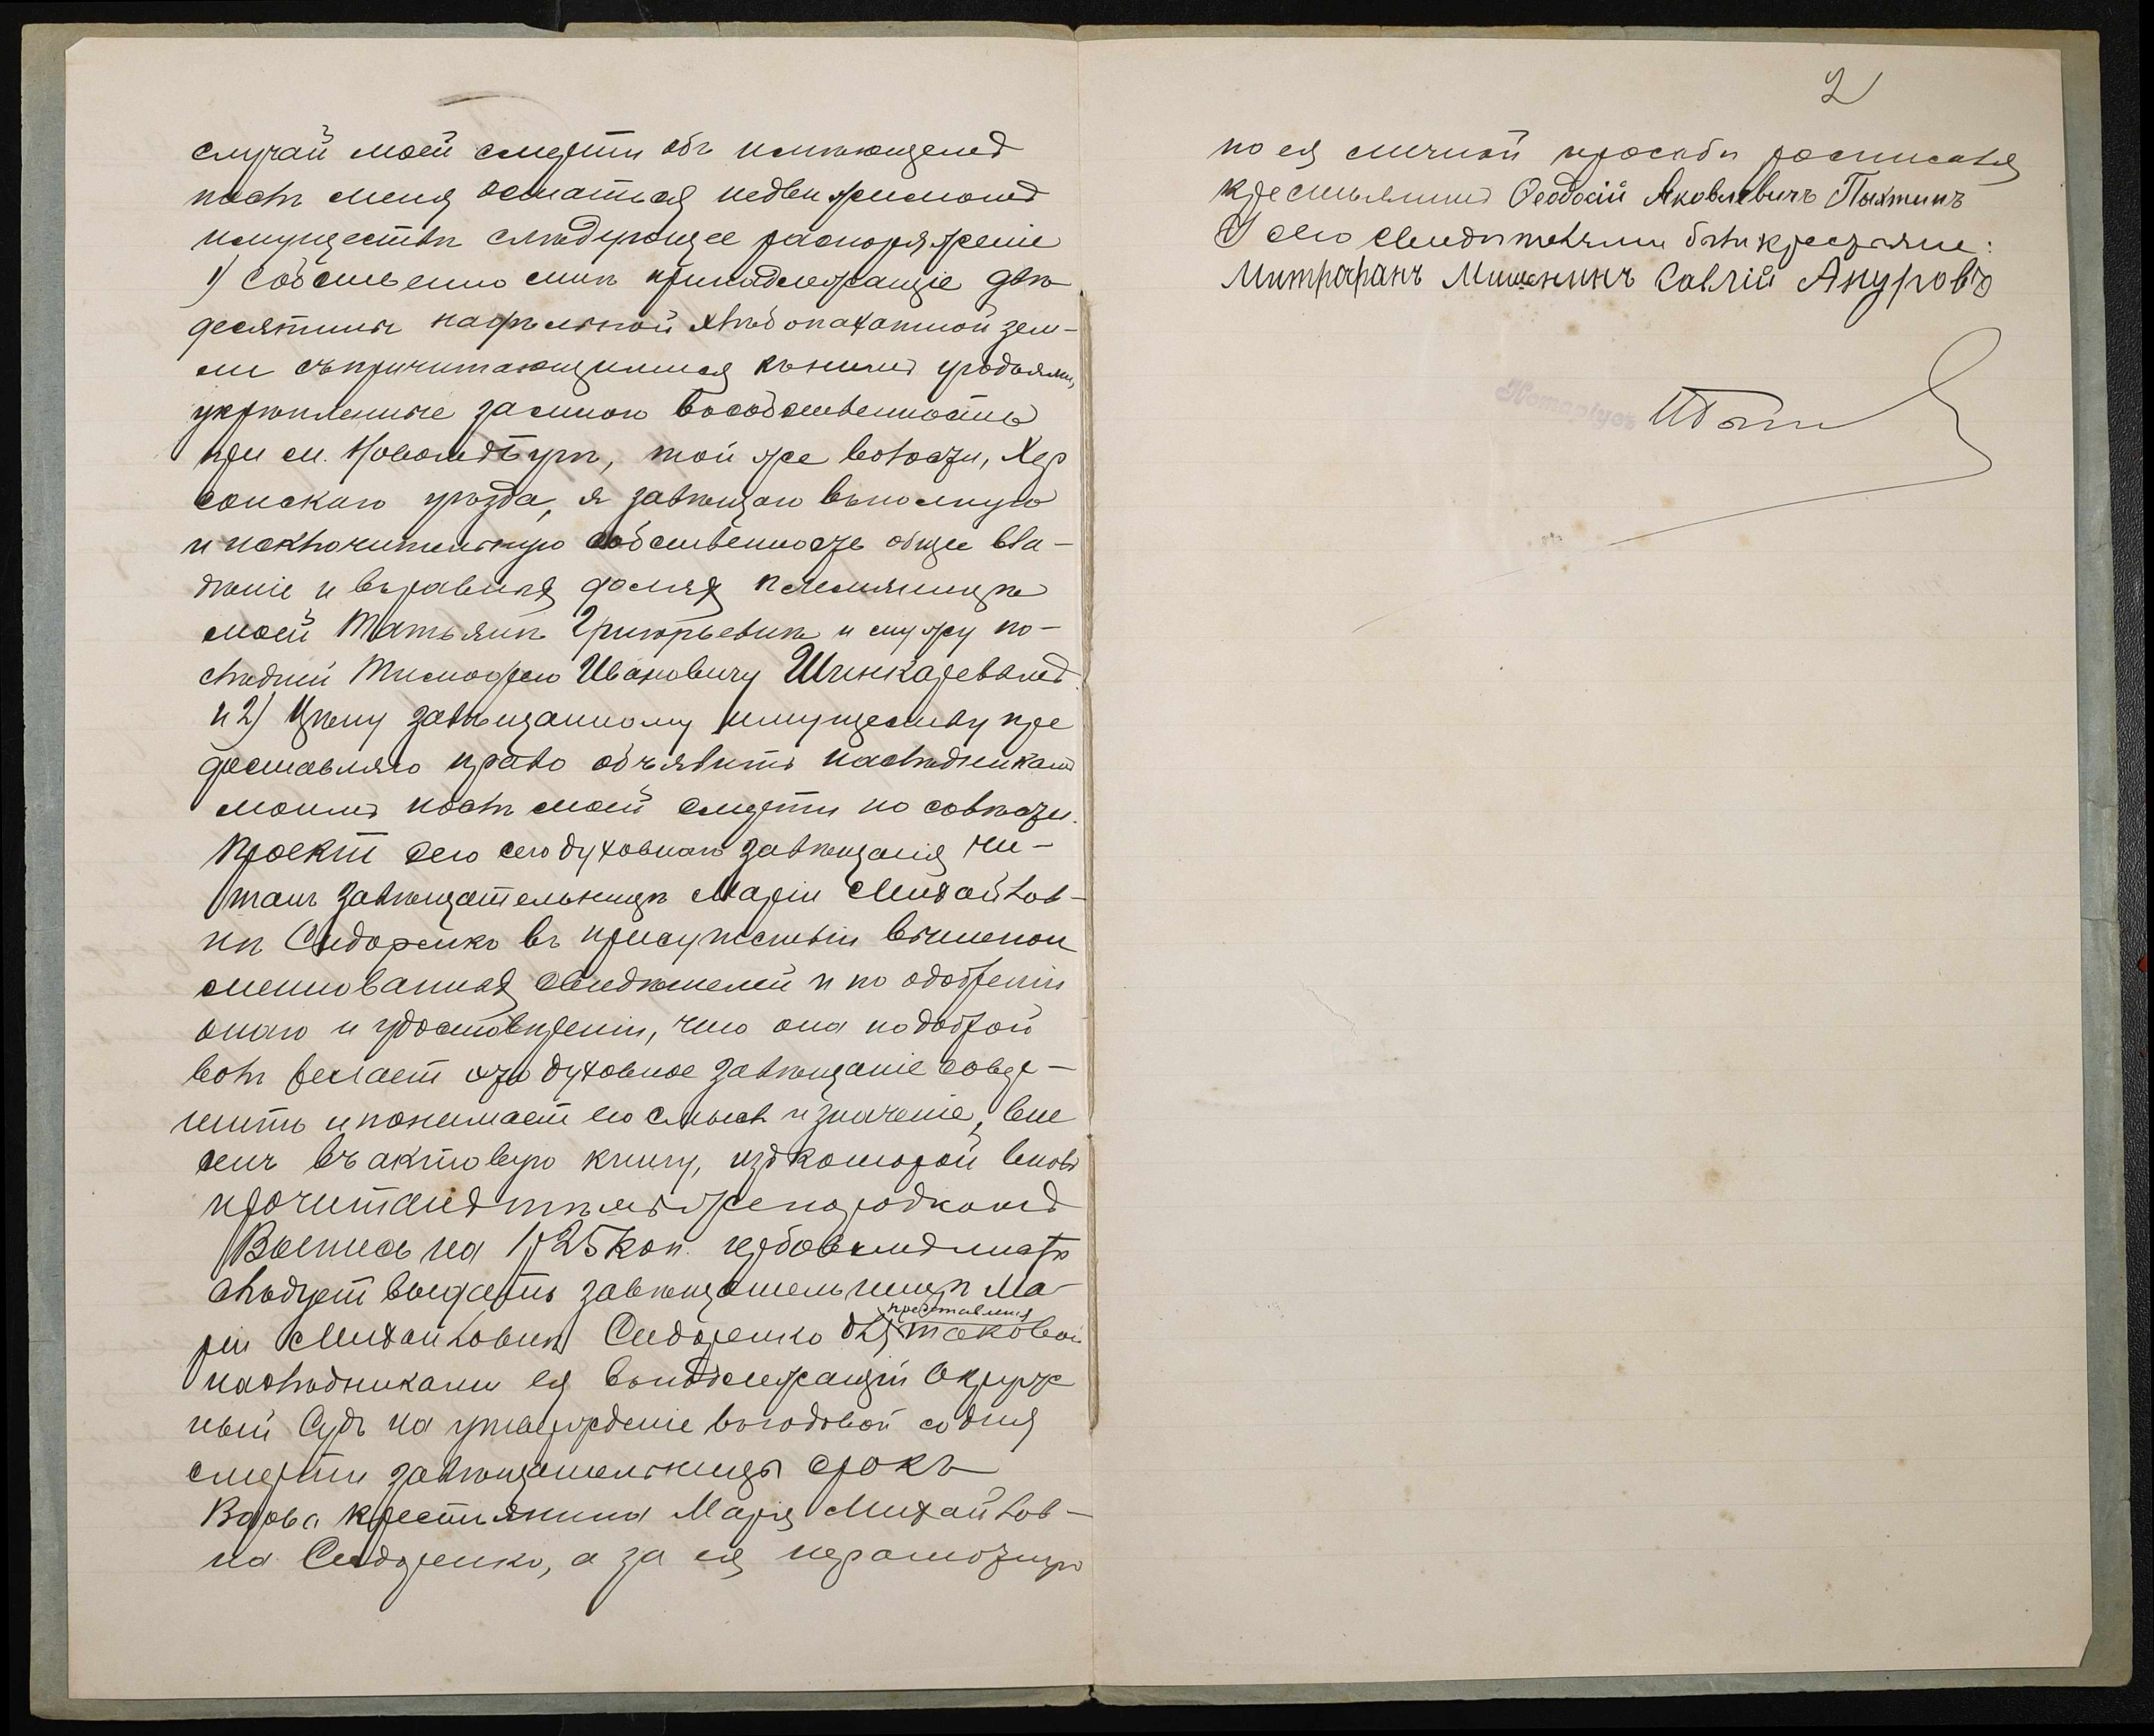 случай моей смерти объ имѣющемъ
послѣ меня остаться недвижимомъ
имуществѣ слѣдующее распоряженіе
1) Собственно мнѣ принадлежащіе двѣ
десятины надѣльной хлѣбопахатной зем-
ли съ причитающимися къ нимъ угодьями,
укрѣпленные за мною въ собственность
при с. той же волости, Хер
сонскаго уѣзда, я завѣщаю въ полную
и исключительную собственность общее вла-
дѣніе и въ равныхъ доляхъ племянницѣ
моей Татьянѣ Григорьевнѣ и мужу по-
слѣдней Тимофею Ивановичу Шинкаревымъ
и 2) Цѣну завѣщанному имуществу пре
доставляю право объявить наслѣдникамъ
моимъ послѣ моей смерти по совѣсти.
Проектъ сего духовнаго завѣщанія чи-
танъ завѣщательницѣ Маріи Михайлов-
нѣ Сидоренко въ присутствіи вышепои
менованныхъ свидѣтелей и по одобреніи
онаго и удостовѣреніи, что она по доброй
волѣ желаетъ это духовное завѣщаніе совер-
шить и понимаетъ его смыслъ и значеніе, вне
сенъ въ актовую книгу, изъ которой вновь
прочитанъ тѣмъ же порядкомъ
Выпись на 1 р 25 коп. гербовомъ листѣ
слѣдуетъ выдать завѣщательницѣ Ма-
ріи Михайловнѣ Сидоренко для представленія таковой
наслѣдниками ея въ подлежащій Окруж
ный Судъ на утвержденіе въ годовой со дня
смерти завѣщательницы срокъ
Вдова крестьянина Марія Михайлов-
на Сидоренко, а за ея неграмотную
2
по ея личной просьбѣ росписался
крестьянинъ Ѳеодосій Яковлевичъ Пыхтинъ
У сего свидѣтелями были крестьяне:
Митрофанъ Мишенинъ Савлій Ануровъ
Нотаріусъ